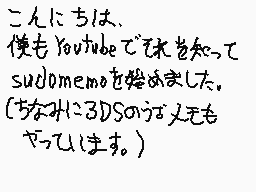 こんにちは、
僕もYoutubeでそれを知って
sudomemoを始めました。
(ちなみに3DSのうごメモも
やっています。)